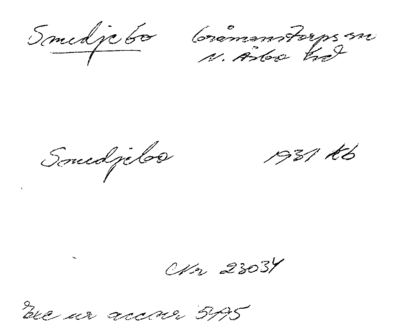 Smedjebo Gråmanstorps sn
N. Åsbo hd
Smedjebo 1931 kb
Nr 23034
Exc ur accnr 5495